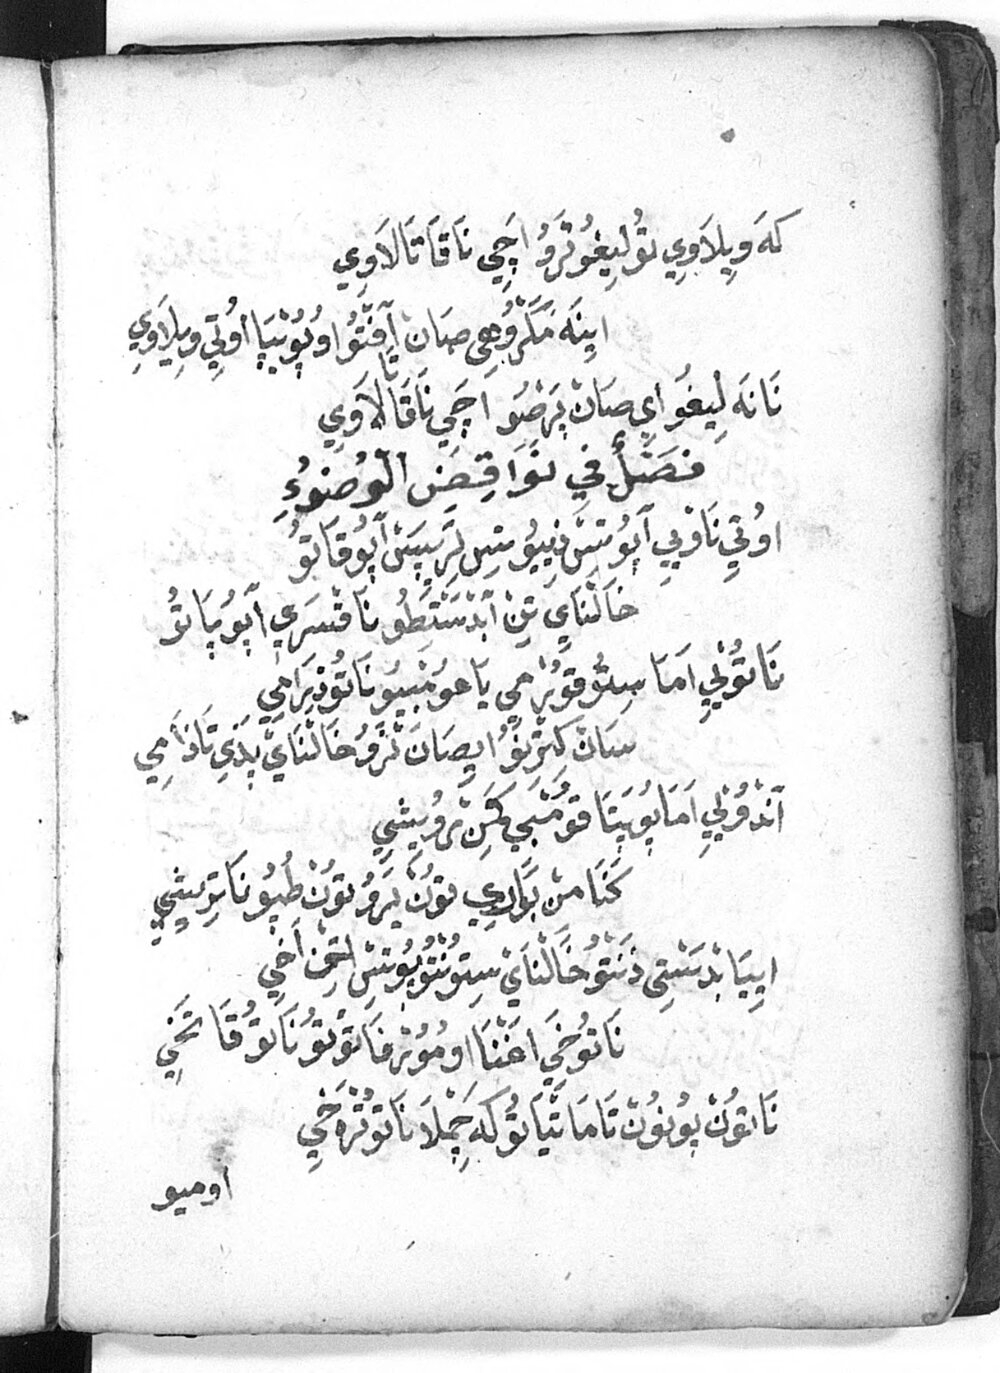 كَه وِيلَاوِي تُولِيغُو تُرَوُ اَچِي نَاقَا تَالَاوِي
اِينَه مَكْرُوهِى صَانْ آفْتُو اُوپُوْنِيَا اُوتِي وِيلَاوِي
نَانَه لِيغُو اِي صَانْ پَرْصُو اَچِي نَاقَاتَالَاوِي
فَصْلٌ فِي نَوَاقِضِ الْوُضُوءِ
اُوتِي نَاوِيي آپُو تِسْ ذِيبُو تِسْ تِرِيپَسْ آپُوقَاتُو
خَالْنَايْ تِنْ آبْدَسْتْطُو نَا قْسَرِي آپُو پَاتُو
نَاتُونِي اَمَا سِتُو قُورْمِي يَا عُومْبِيُو نَاتُو ذِيرَامِي
سَانْ كَرِغُو اِيصَانَ تُرَوُ خَالْنَايْ پِذِي تَاذَامِي
آنْدُونِي اَمَا پُوپَتَا قُومْبِي كَنْ مْرُوشِي
كَنَا مَنْ بَوَارِي تُونْ يَرَوُ تُونْ طُپُو نَا تِرِيشِي
اِيپِيَا بْدَسْتِى ذَنْتُو خَالْنَايْ سِتُونْتُو پُوتِسْ لَخَنْ اَخِي
نَا تُوخِي اَغْنَا اُو مُؤْرْفَا تُونْتُو نَا تُوقَا تَخِي
نَا تُونْ پُونُونْ تَا مَاتْيَا تُو كَه چِمْپِلَا نَا تُو تْرَخِي
اومیو